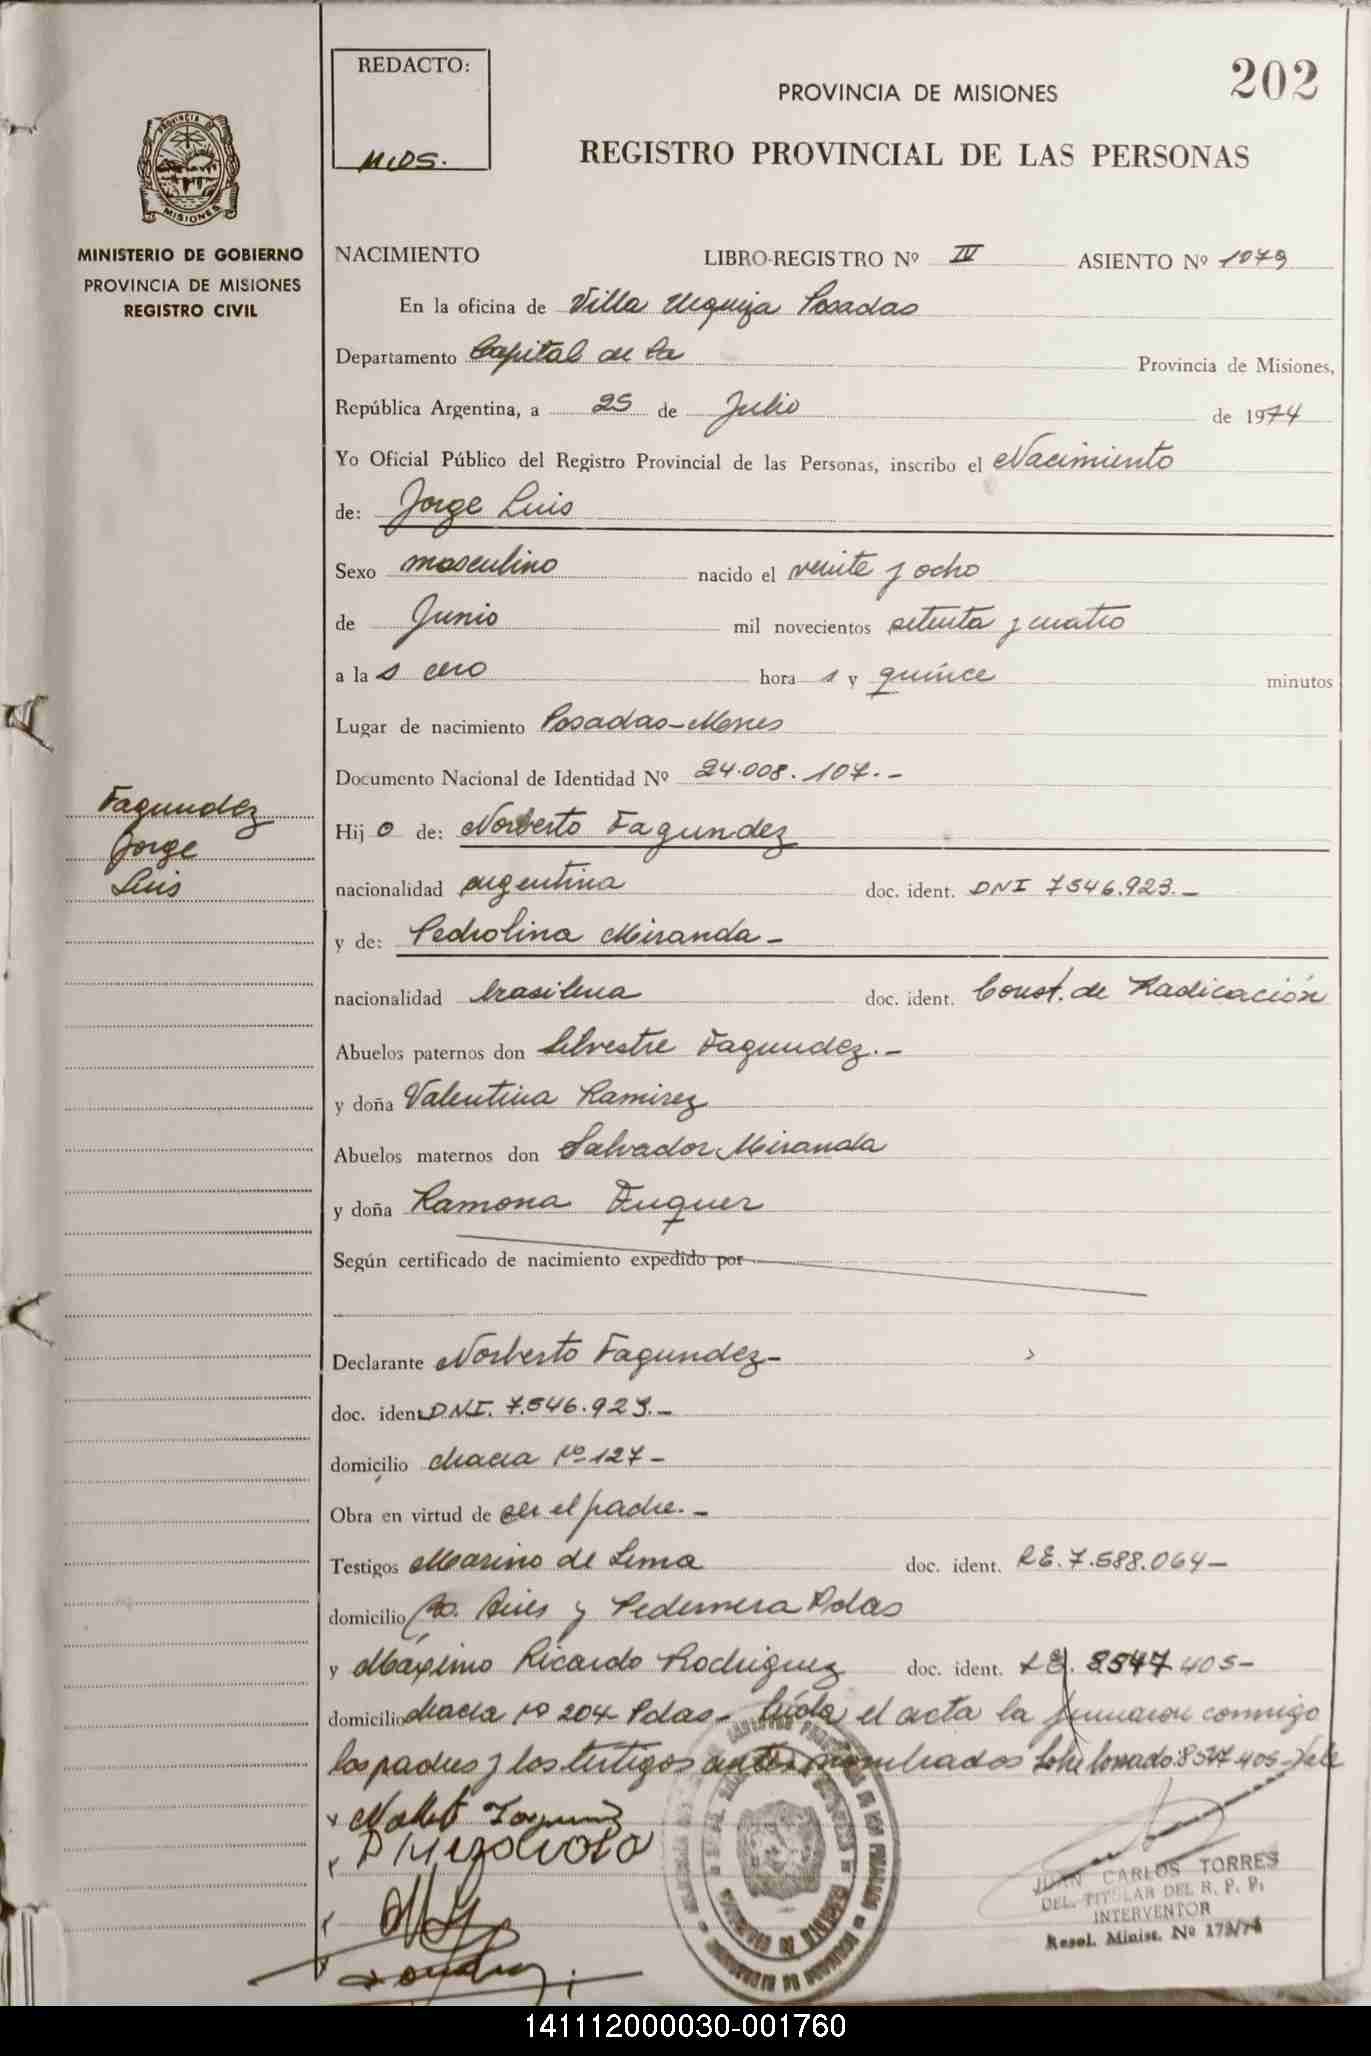 REDACTO:
M.DS.
202
PROVINCIA DE MISIONES
REGISTRO PROVINCIAL DE LAS PERSONAS
PROVINCIA DE
MISIONES
MINISTERIO DE GOBIERNO
PROVINCIA DE MISIONES
REGISTRO CIVIL
NACIMIENTO LIBRO-REGISTRO Nº IV ASIENTO Nº 1079
En la oficina de Villa Urquiza Posadas
Departamento Capital de la Provincia de Misiones,
República Argentina, a 25 de Julio de 1974
Yo Oficial Público del Registro Provincial de las Personas, inscribo el Nacimiento
de: Jorge Luis
Sexo masculino nacido el veinte y ocho
de Junio mil novecientos setenta y cuatro
a la s cero hora s y quince minutos
Lugar de nacimiento Posadas-Mnes
Documento Nacional de Identidad Nº 24.008.107.-
Fagundez
Jorge
Luis
Hij o de: Norberto Fagundez
nacionalidad argentina doc. ident. DNI 7546.923.-
y de: Pedrolina Miranda-
nacionalidad brasilena doc. ident. Const. de Radicación
Abuelos paternos don Silvestre Fagundez.-
y doña Valentina Ramirez
Abuelos maternos don Salvador Miranda
y doña Ramona Fuquer
Según certificado de nacimiento expedido por
Declarante Norberto Fagundez-
doc. ident DNI. 7.546.923.-
domicilio chacra Nº 127-
Obra en virtud de ser el padre.-
Testigos Marino de Lima doc. ident. LE. 7.588.064-
domicilio Bs. Aires y Pedernera Pdas
y Máximo Ricardo Rodriguez doc. ident. LE. 8547 405-
domicilio chacra Nº 204 Pdas- Leída el acta la firmaron conmigo
los padres y los testigos antes nombrados Sobre borrado: 8547 405-Vale
JUAN CARLOS TORRES
DEL. TITULAR DEL R. P. P.
INTERVENTOR
Resol. Minist. Nº 173/74
141112000030-001760